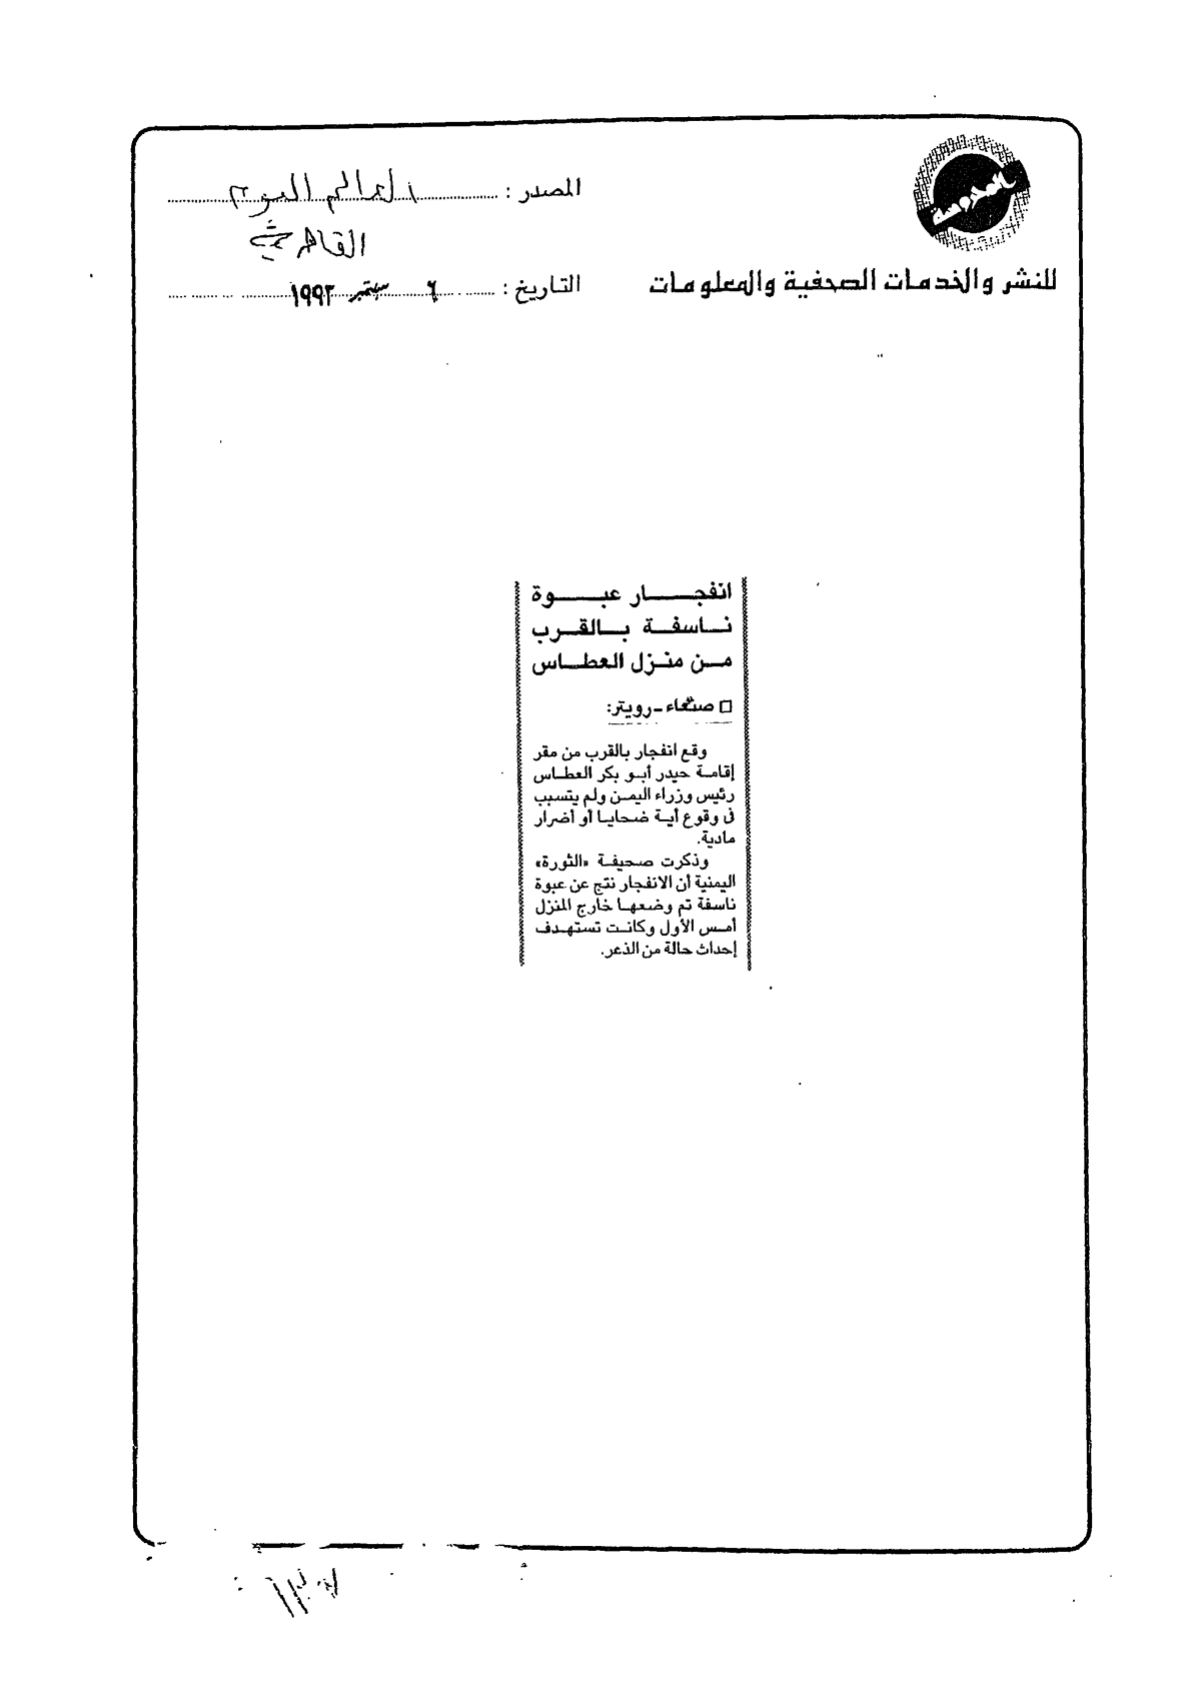 المحروسة
للنشر والخدمات الصحفية والمعلومات
المصدر : العالم اليوم
القاهرية
التاريخ : ٦ سبتمبر ١٩٩٢
انفجار عبوة
ناسفة بالقرب
من منزل العطاس
□ صنعاء - رويتر:
وقع انفجار بالقرب من مقر
إقامة حيدر أبو بكر العطاس
رئيس وزراء اليمن ولم يتسبب
فى وقوع أية ضحايا أو أضرار
مادية.
وذكرت صحيفة «الثورة»
اليمنية أن الانفجار نتج عن عبوة
ناسفة تم وضعها خارج المنزل
أمس الأول وكانت تستهدف
إحداث حالة من الذعر.